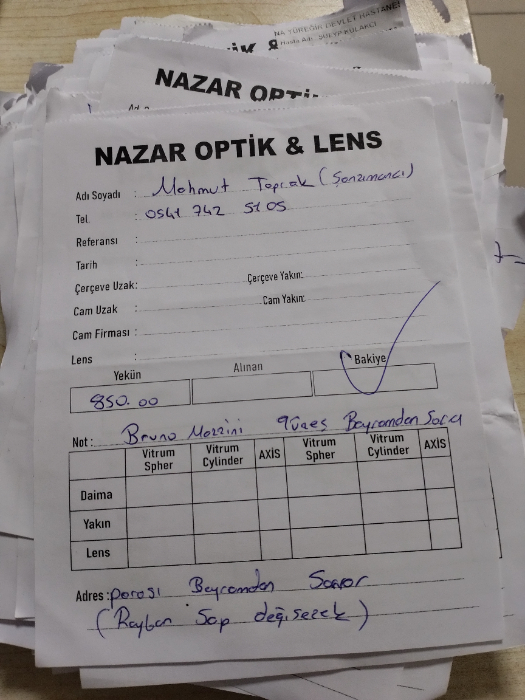 NA YÜREĞİR DEVLET HASTANESİ
NAZAR OPTİK
NAZAR OPTİK & LENS
Adı Soyadı : Mahmut Toprak (Şanzımancı)
Tel : 0541 742 5105
Referansı :
Tarih :
Çerçeve Uzak: Çerçeve Yakın:
Cam Uzak : Cam Yakın:
Cam Firması :
Lens :
Yekün Alınan Bakiye
850.00
Not : Bruno Mazzini Güneş Bayramdan Sonra
Vitrum Spher Vitrum Cylinder AXİS Vitrum Spher Vitrum Cylinder AXİS
Daima
Yakın
Lens
Adres : parası Bayramdan Sonra
(Rayban Sap değişecek)